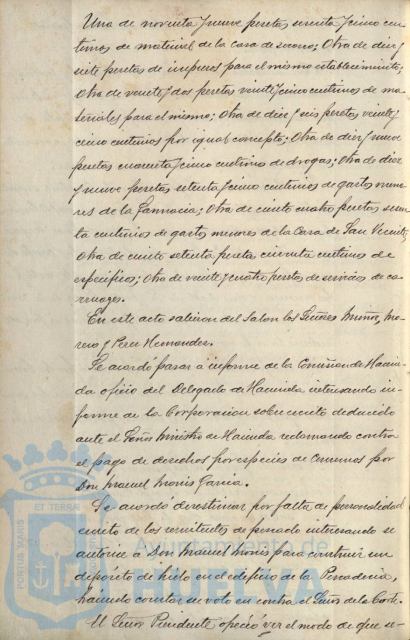 Una de noventa y nueve pesetas sesenta y cinco cen-
timos de material de la casa de socorro; Otra de diez y
siete pesetas de impresos para el mismo establecimiento;
Otra de veinte y dos pesetas veinte y cinco centimos de ma-
teriales para el mismo; Otra de diez y seis pesetas veinte y
cinco centimos por igual concepto; Otra de diez y nueve
pesetas cuarenta y cinco centimos de drogas; Otra de diez
y nueve pesetas setenta y cinco centimos de gastos meno-
res de la Farmacia; Otra de ciento cuatro pesetas
centimos de gastos menores de la Casa de San Vicente;
Otra de ciento setenta pesetas cincuenta centimos de
especificos; Otra de veinte y cuatro pesetas de servicios de ca-
rruages.
En este acto salieron del Salon los Señores Muñoz, Mo-
reno y Perez Hernandez.
Se acordó pasar á informe de la Comision de Hacien-
da oficio del Delegado de Hacienda interesando in-
forme de la Corporacion sobre escrito deducido
ante el Señor Ministro de Hacienda reclamando contra
el pago de derechos por especies de consumos por
Don Manuel Garcia.
Se acordó desestimar por falta de personalidad
escrito de los de pescado interesando se
autorice á Don Manuel para construir un
depósito de hielo en el edificio de la Pescaderia,
haciendo constar su voto en contra el Señor de la Corte.
El Señor Presidente ofreció ver el modo de que se-
PORTUS MARIS
ET TERRAE
Ayuntamiento de
HUELVA